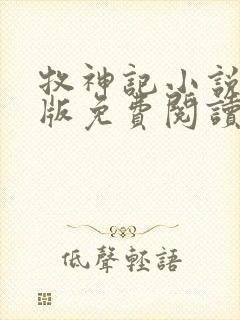 牧神記小說
版免費閱讀
低聲輕語